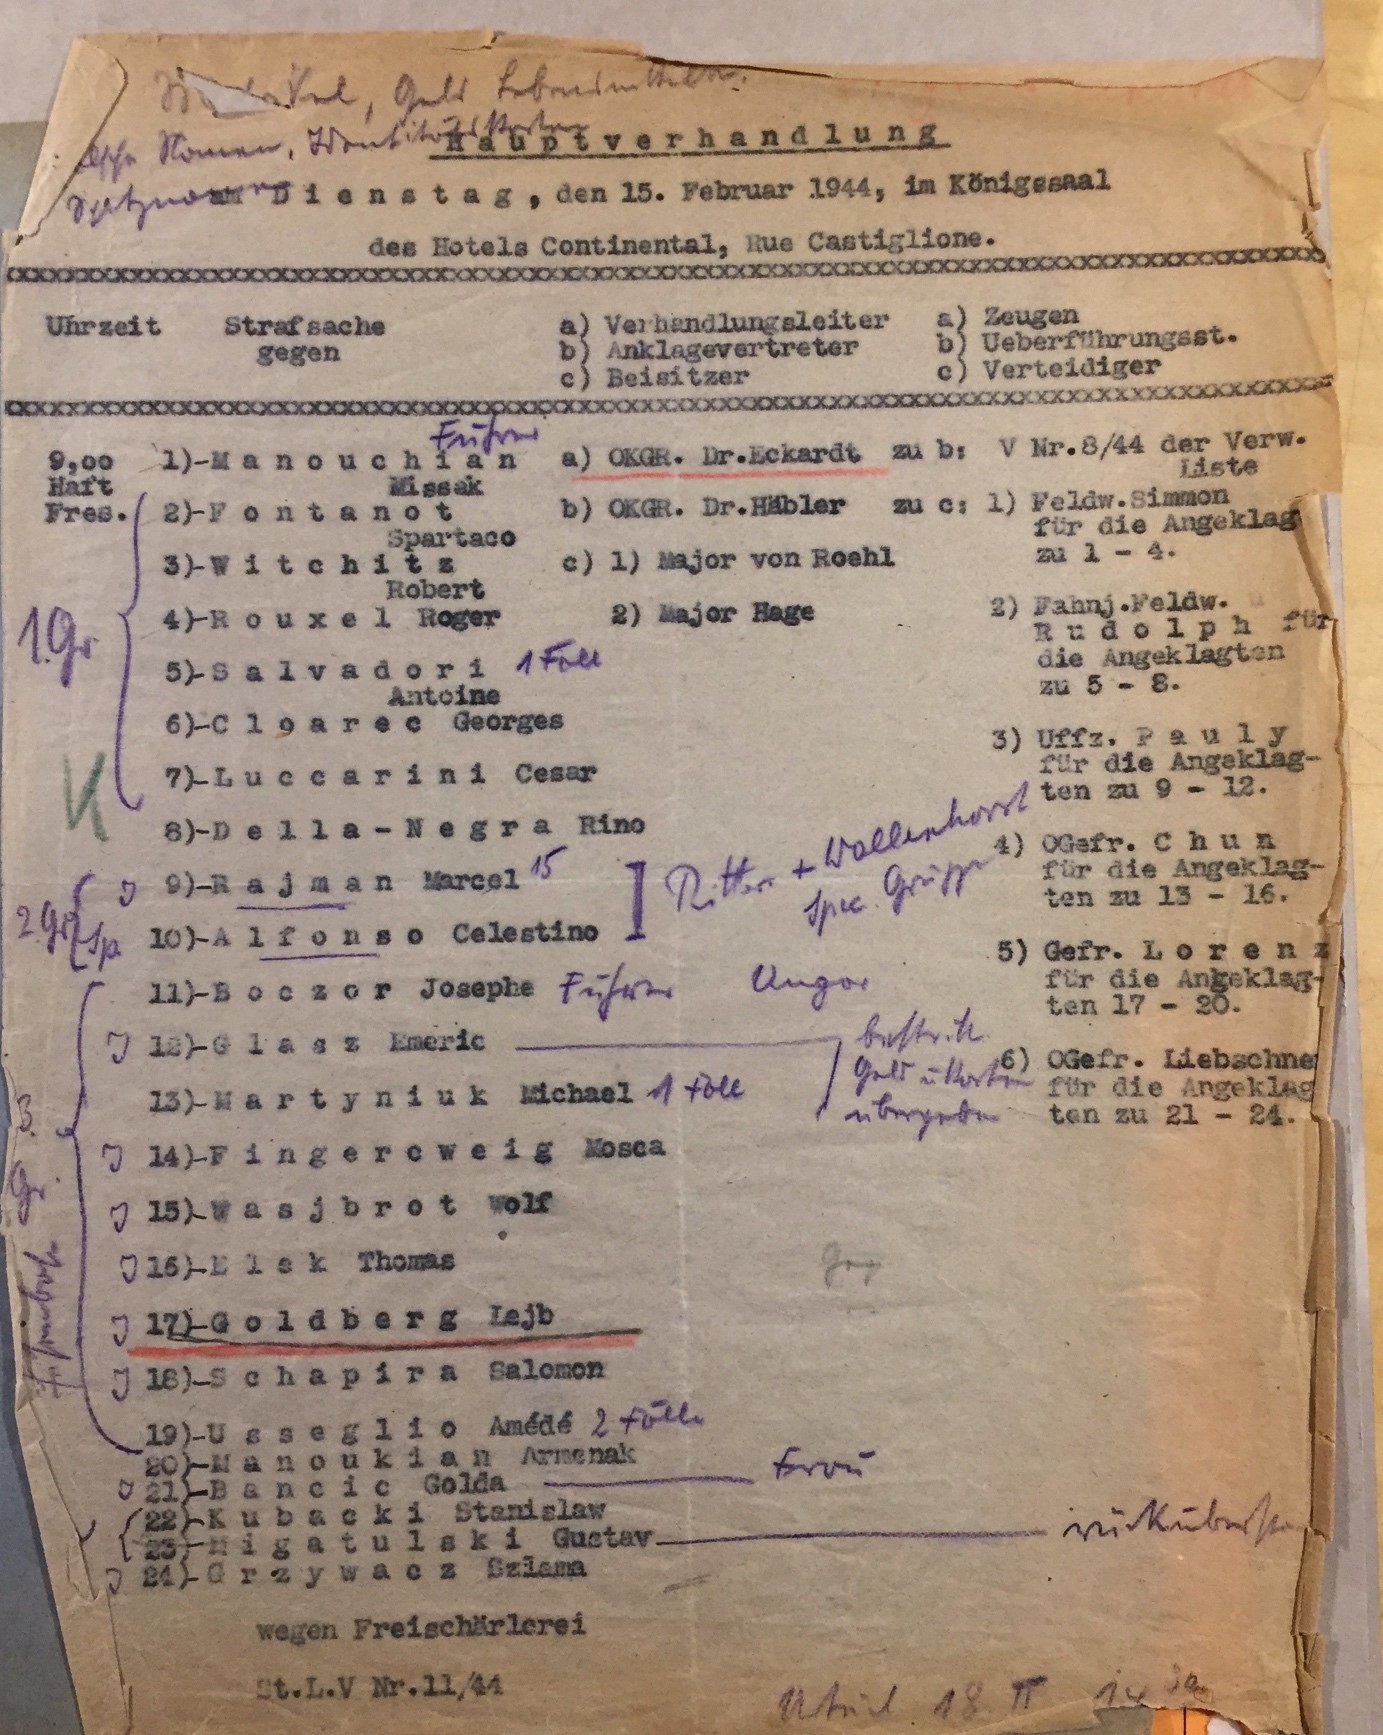 Geld Lebensmittel.
Namen, Identitätskarten
Hauptverhandlung
am Dienstag, den 15. Februar 1944, im Königssaal
des Hotels Continental, Rue Castiglione.
Uhrzeit Strafsache gegen
a) Verhandlungsleiter
b) Anklagevertreter
c) Beisitzer
a) Zeugen
b) Ueberführungsst.
c) Verteidiger
9,oo
Haft
Fres.
1. Gr
2. Gr
Sp.
3.
Gr.
K
Führer
1)-Manouchian
Missak
2)-Fontanot
Spartaco
3)-Witchitz
Robert
4)-Rouxel Roger
5)-Salvadori 1 Fall
Antoine
6)-Cloarec Georges
7)-Luccarini Cesar
8)-Della-Negra Rino
J 9)-Rajman Marcel 15
10)-Alfonso Celestino
Ritter + Wallenhorst
spec. Gruppe
11)-Boczor Josephe Führer Ungar
J 12)-Glasz Emeric
bestreit.
Geld u Karten
übergeben
13)-Martyniuk Michael 1 Fall
J 14)-Fingercweig Mosca
J 15)-Wasjbrot Wolf
J 16)-Elek Thomas
J 17)-Goldberg Lejb
J 18)-Schapira Salomon
19)-Usseglio Amédé 2 Fälle
20)-Manoukian Armenak
J 21)-Bancic Golda Frau
22)-Kubacki Stanislaw
23)-Migatulski Gustav
J 24)-Grzywacz Szlama
wegen Freischärlerei
St.L.V Nr.11/44
a) OKGR. Dr.Eckardt
b) OKGR. Dr.Häbler
c) 1) Major von Roehl
2) Major Hage
zu b: V Nr.8/44 der Verw.
Liste
zu c: 1) Feldw.Simmon
für die Angeklag
zu 1 - 4.
2) Fahnj.Feldw.
Rudolph für
die Angeklagten
zu 5 - 8.
3) Uffz. Pauly
für die Angeklag-
ten zu 9 - 12.
4) OGefr. Chun
für die Angeklag-
ten zu 13 - 16.
5) Gefr. Lorenz
für die Angeklag-
ten 17 - 20.
6) OGefr. Liebschne
für die Angeklag
ten zu 21 - 24.
Urteil 18 II 14 30